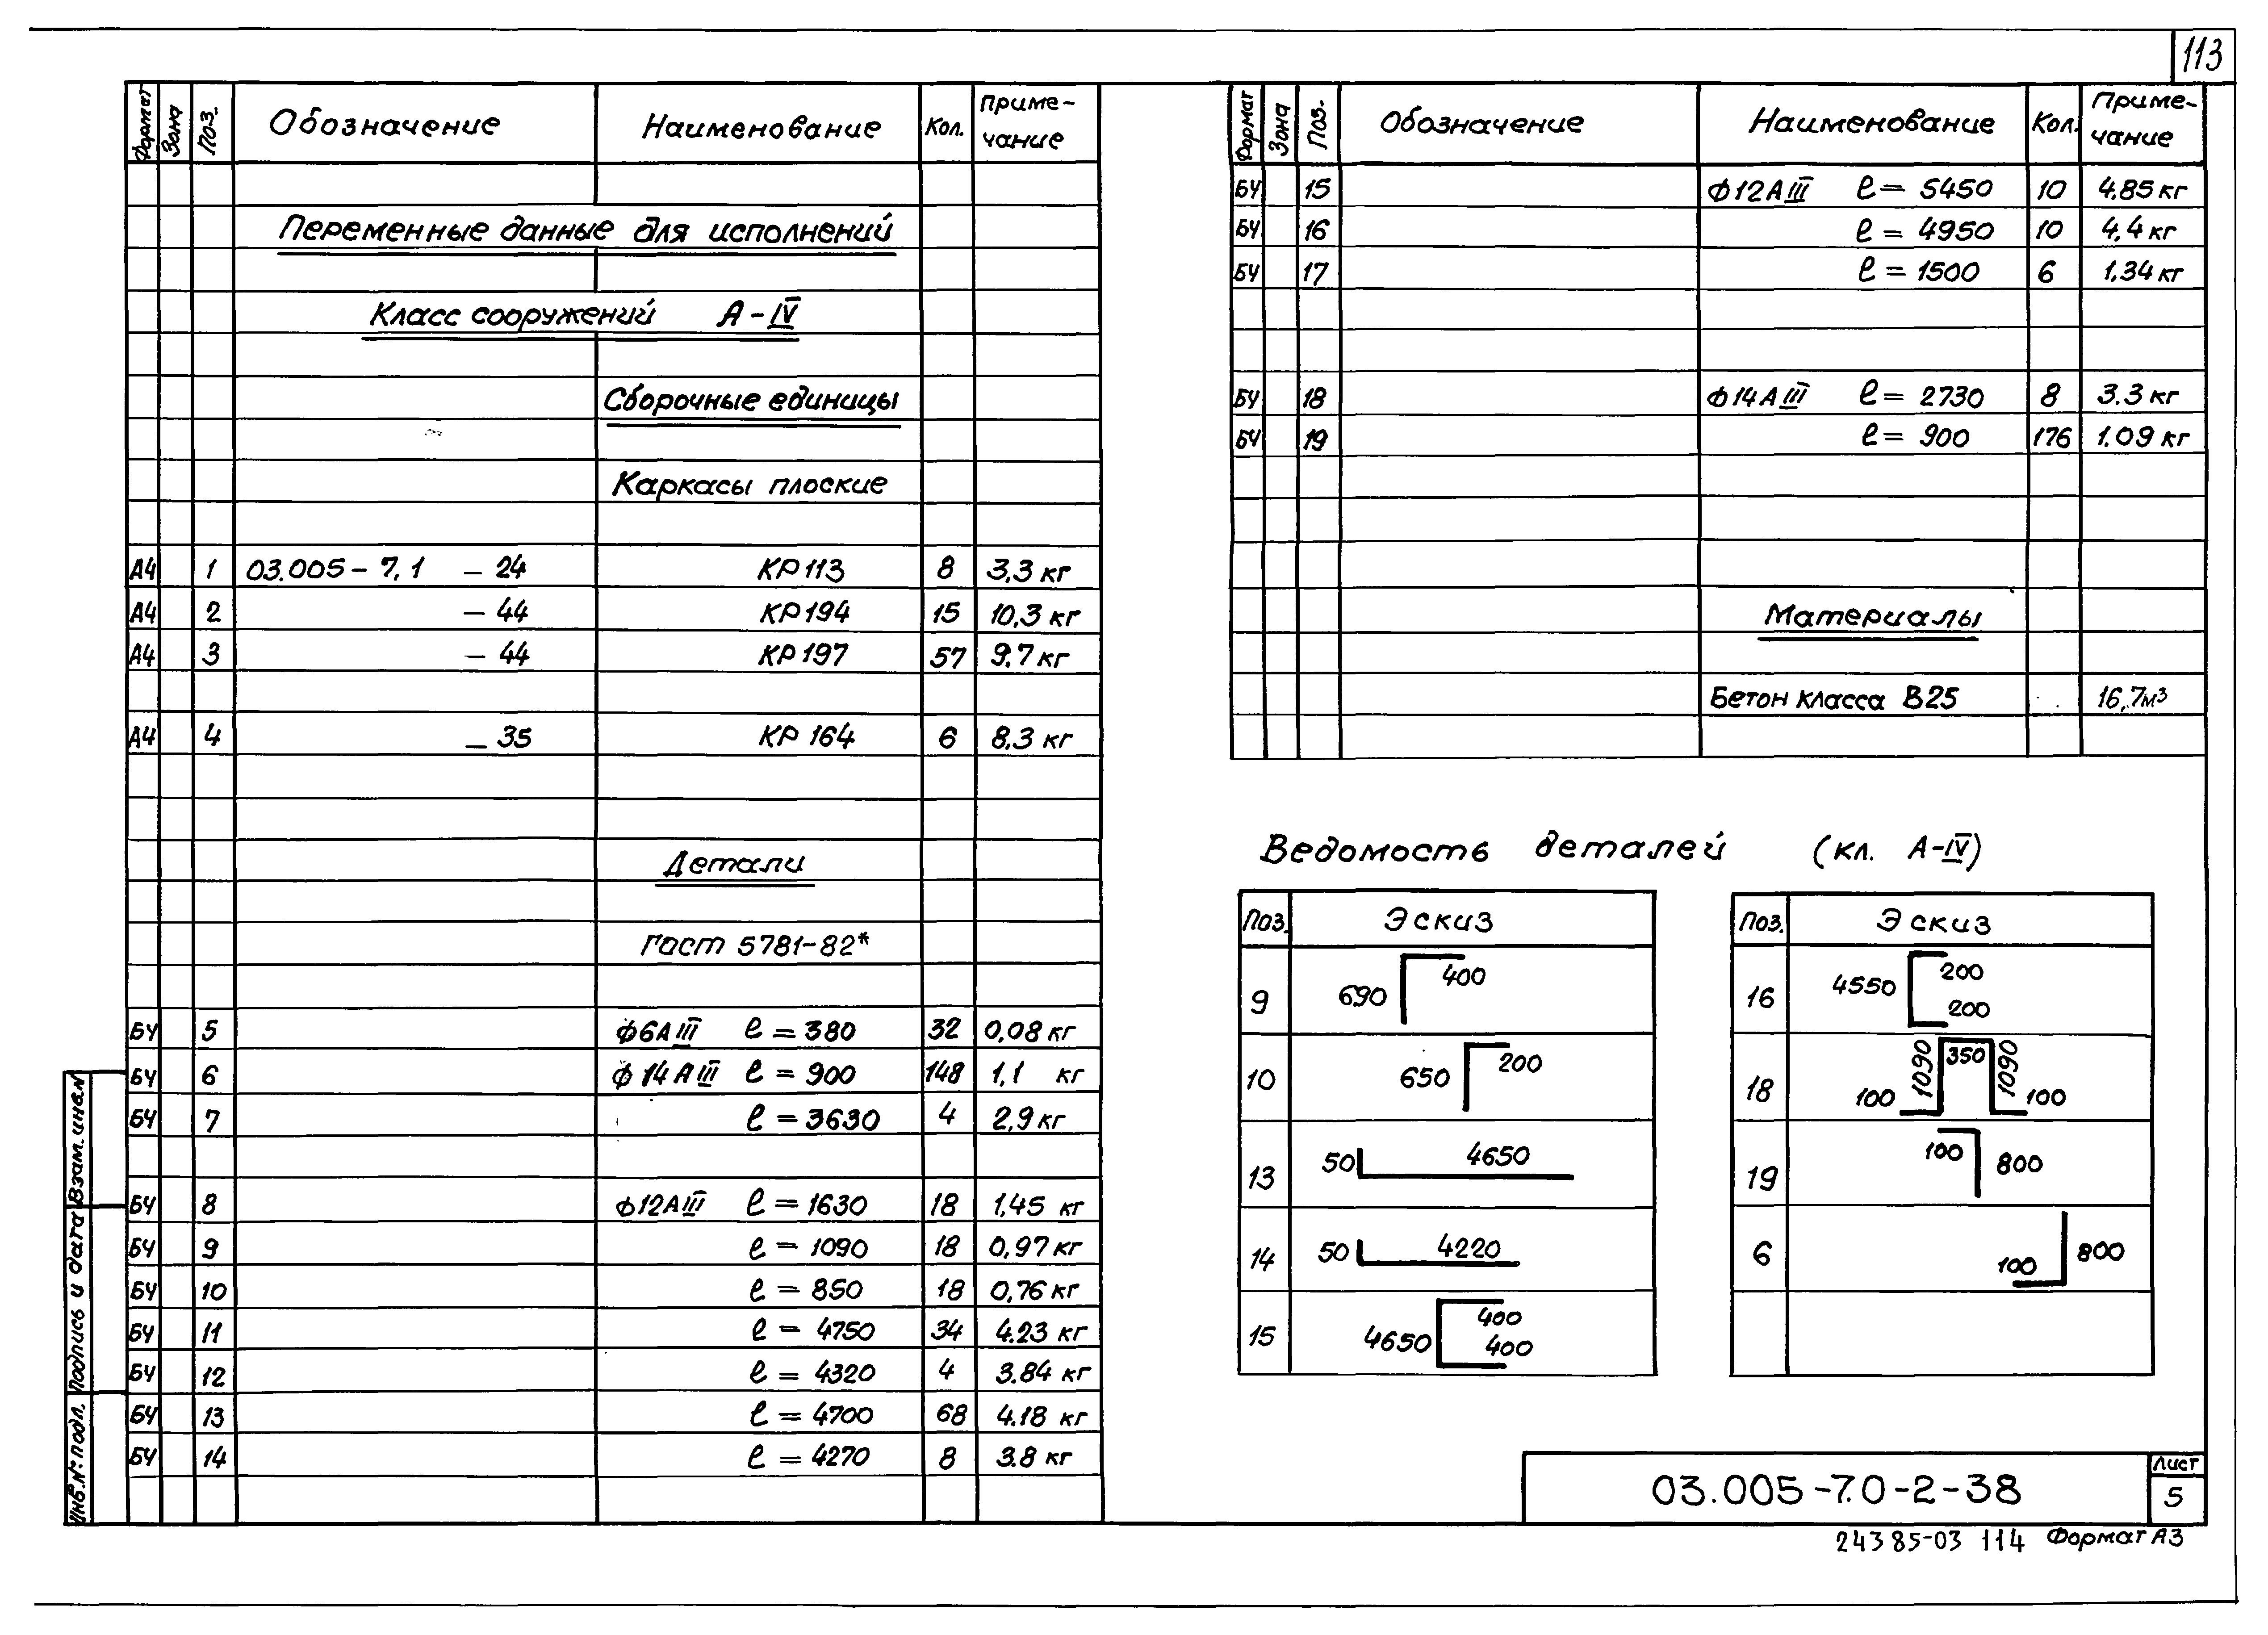 113
Формат Зона Поз. Обозначение Наименование Кол. Приме-чание
Переменные данные для исполнений
Класс сооружений А-IV
Сборочные единицы
Каркасы плоские
А4 1 03.005-7.1 -24 КР113 8 3,3 кг
А4 2 -44 КР194 15 10,3 кг
А4 3 -44 КР197 57 9,7 кг
А4 4 -35 КР164 6 8,3 кг
Детали
Гост 5781-82*
БЧ 5 Ф6АIII ℓ=380 32 0,08 кг
БЧ 6 Ф14АIII ℓ=900 148 1,1 кг
БЧ 7 ℓ=3630 4 2,9 кг
БЧ 8 Ф12АIII ℓ=1630 18 1,45 кг
БЧ 9 ℓ=1090 18 0,97 кг
БЧ 10 ℓ=850 18 0,76 кг
БЧ 11 ℓ=4750 34 4.23 кг
БЧ 12 ℓ=4320 4 3.84 кг
БЧ 13 ℓ=4700 68 4.18 кг
БЧ 14 ℓ=4270 8 3.8 кг
Формат Зона Поз. Обозначение Наименование Кол. Приме-чание
БЧ 15 Ф12АIII ℓ=5450 10 4.85 кг
БЧ 16 ℓ=4950 10 4,4 кг
БЧ 17 ℓ=1500 6 1.34 кг
БЧ 18 Ф14АIII ℓ=2730 8 3.3 кг
БЧ 19 ℓ=900 176 1.09 кг
Материалы
Бетон класса В25 16,7м³
Ведомость деталей (кл. А-IV)
Поз. Эскиз
9 690 400
10 650 200
13 50 4650
14 50 4220
15 4650 400 400
Поз. Эскиз
16 4550 200 200
18 100 1090 350 1090 100
19 100 800
6 100 800
Инв.№ подл. Подпись и дата Взам.инв.№
03.005-7.0-2-38
Лист
5
24385-03 114 Формат А3